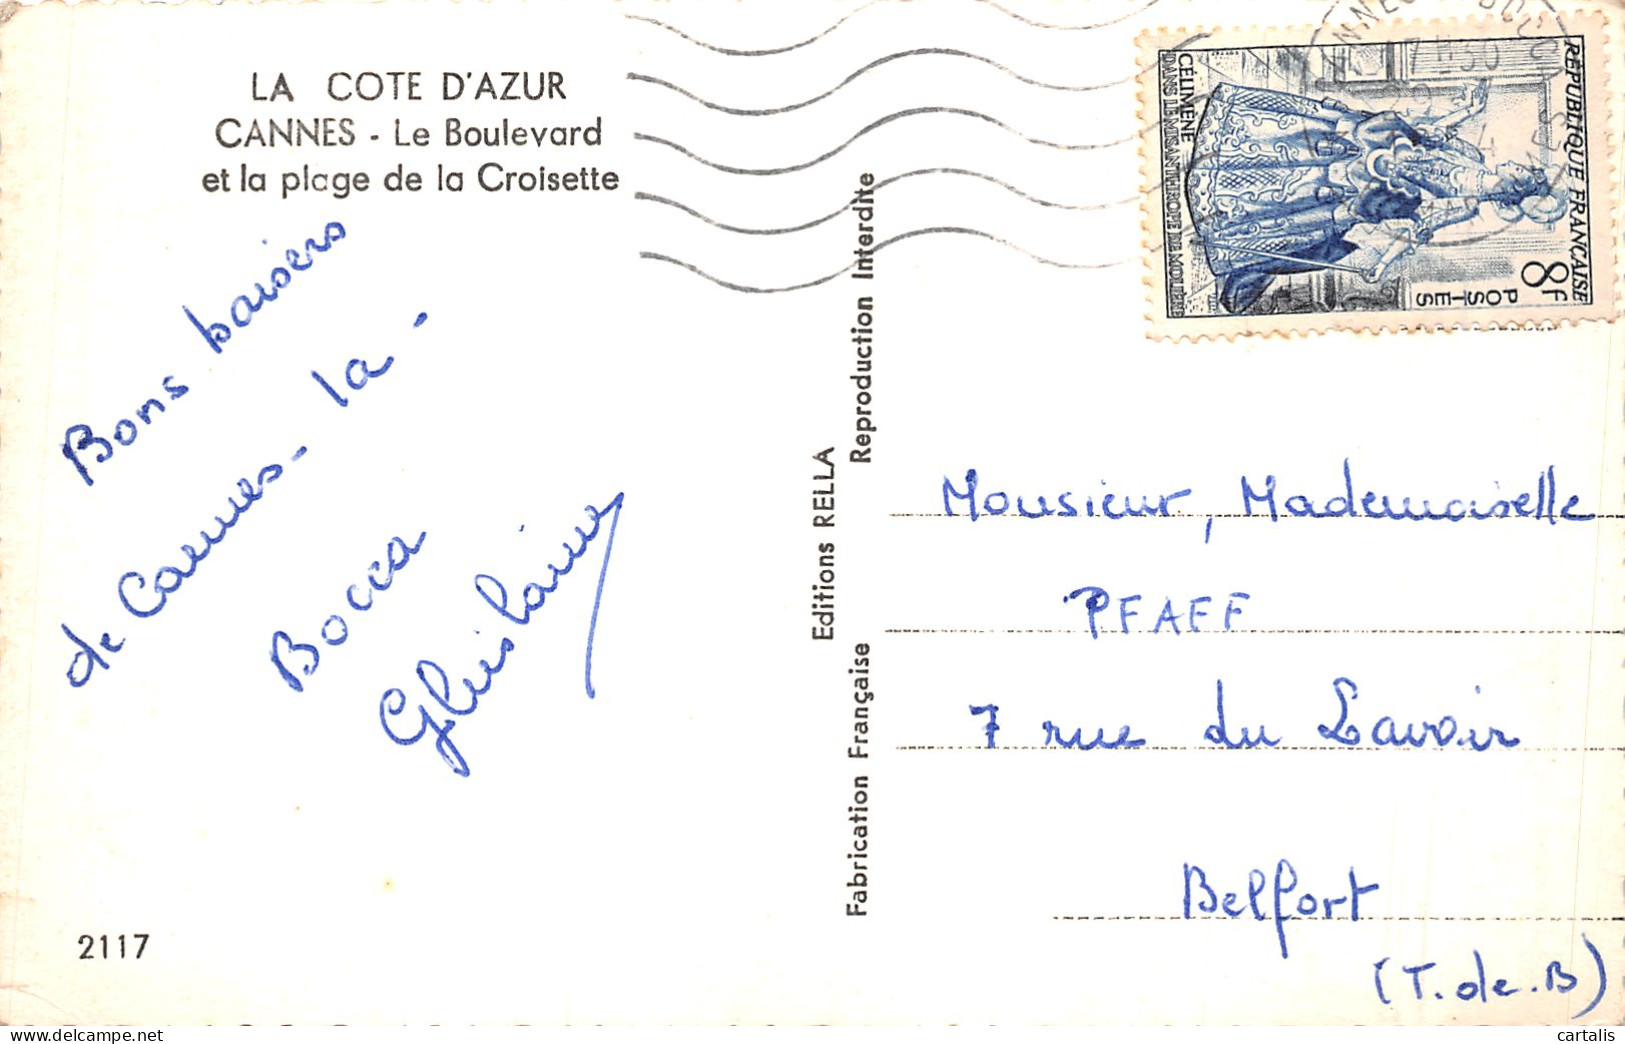 LA COTE D'AZUR
CANNES - Le Boulevard
et la plage de la Croisette
Bons baisers
de Cannes - la -
Bocca
Ghislaine
2117
Editions RELLA
Fabrication Française
Reproduction Interdite
RÉPUBLIQUE FRANÇAISE
8F
POSTES
CÉLIMÈNE
DANS LE MISANTHROPE DE MOLIÈRE
7H30
Monsieur, Mademoiselle
PFAFF
7 rue du Lavoir
Belfort
(T. de. B)
cartalis